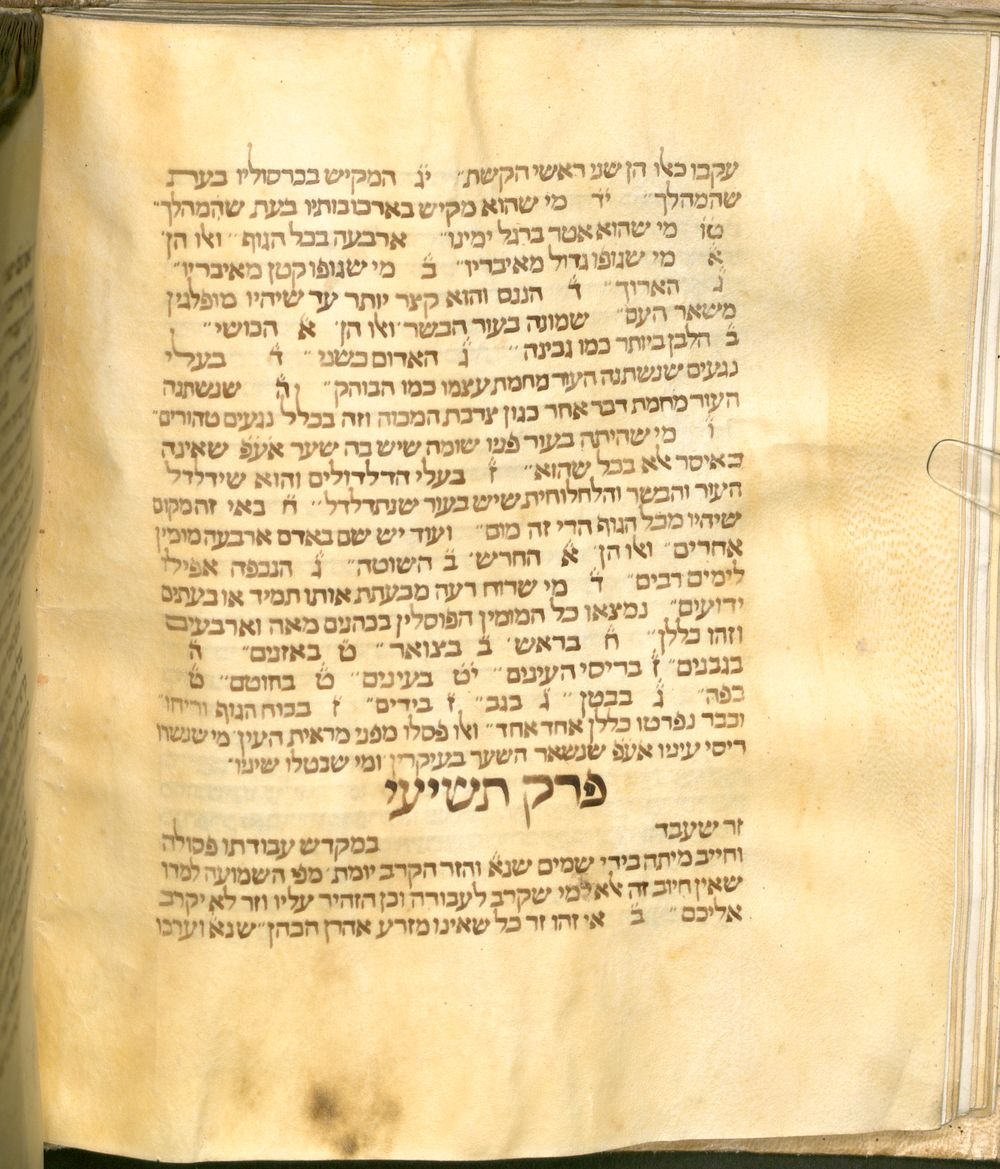 עקבו כאלו הן שני ראשי הקשת״ יג המקיש בכרסוליו בעת
שהמהלך״ יד מי שהוא מקיש בארכובותיו בעת שהמהלך״
טו מי שהוא אטר ברגל ימינו״ ארבעה בכל הגוף״ ואלו הן׳
א מי שגופו גדול מאיבריו״ ב מי שגופו קטן מאיבריו״
ג הארוך״ ד הננס והוא קצר יותר עד שיהיו מופלגין
משאר העם״ שמונה בעור הבשר׳ ואלו הן׳ א הכושי״
ב הלבן ביותר כמו גבינה״ ג האדום כשני״ ד בעלי
נגעים שנשתנה העור מחמת עצמו כמו הבוהק״ ה שנשתנה
העור מחמת דבר אחר כגון צרבת המכוה וזה בכלל נגעים טהורים״
ו מי שהיתה בעור פניו שומה שיש בה שער אעפ שאינה
כאיסר אלא בכל שהוא״ ז בעלי הדלדולים והוא שידלדל
העור והבשר והלחלוחית שיש בעור שנתדלדל״ ח באי זה מקום
שיהיו מכל הגוף הרי זה מום״ ועוד יש שם באדם ארבעה מומין
אחרים״ ואלו הן׳ א החרש׳ ב השוטה״ ג הנכפה אפילו
לימים רבים״ ד מי שרוח רעה מבעתת אותו תמיד או בעתים
ידועים״ נמצאו כל המומין הפוסלין בכהנים מאה וארבעים
וזהו כללן״ ח בראש׳ ב בצואר״ ט באזנים״ ה
בגבנים״ ז בריסי העינים״ יט בעינים״ ט בחוטם״ ט
בפה״ ג בבטן״ ג בגב״ ז בידים״ ז בכוח הגוף וריחו״
וכבר נפרטו כללן אחד אחד״ ואלו פסלו מפני מראית העין׳ מי שנשרו
ריסי עיניו אעפ שנשאר השער בעיקרין׳ ומי שנטלו שיניו׳
פרק תשיעי
זר שעבד במקדש עבודתו פסולה
וחייב מיתה בידי שמים שנא והזר הקרב יומת׳ מפי השמועה למדו
שאין חיוב זה אלא למי שקרב לעבודה וכן הזהיר עליו וזר לא יקרב
אליכם״ ב אי זהו זר כל שאינו מזרע אהרן הכהן״ שנא וערכו